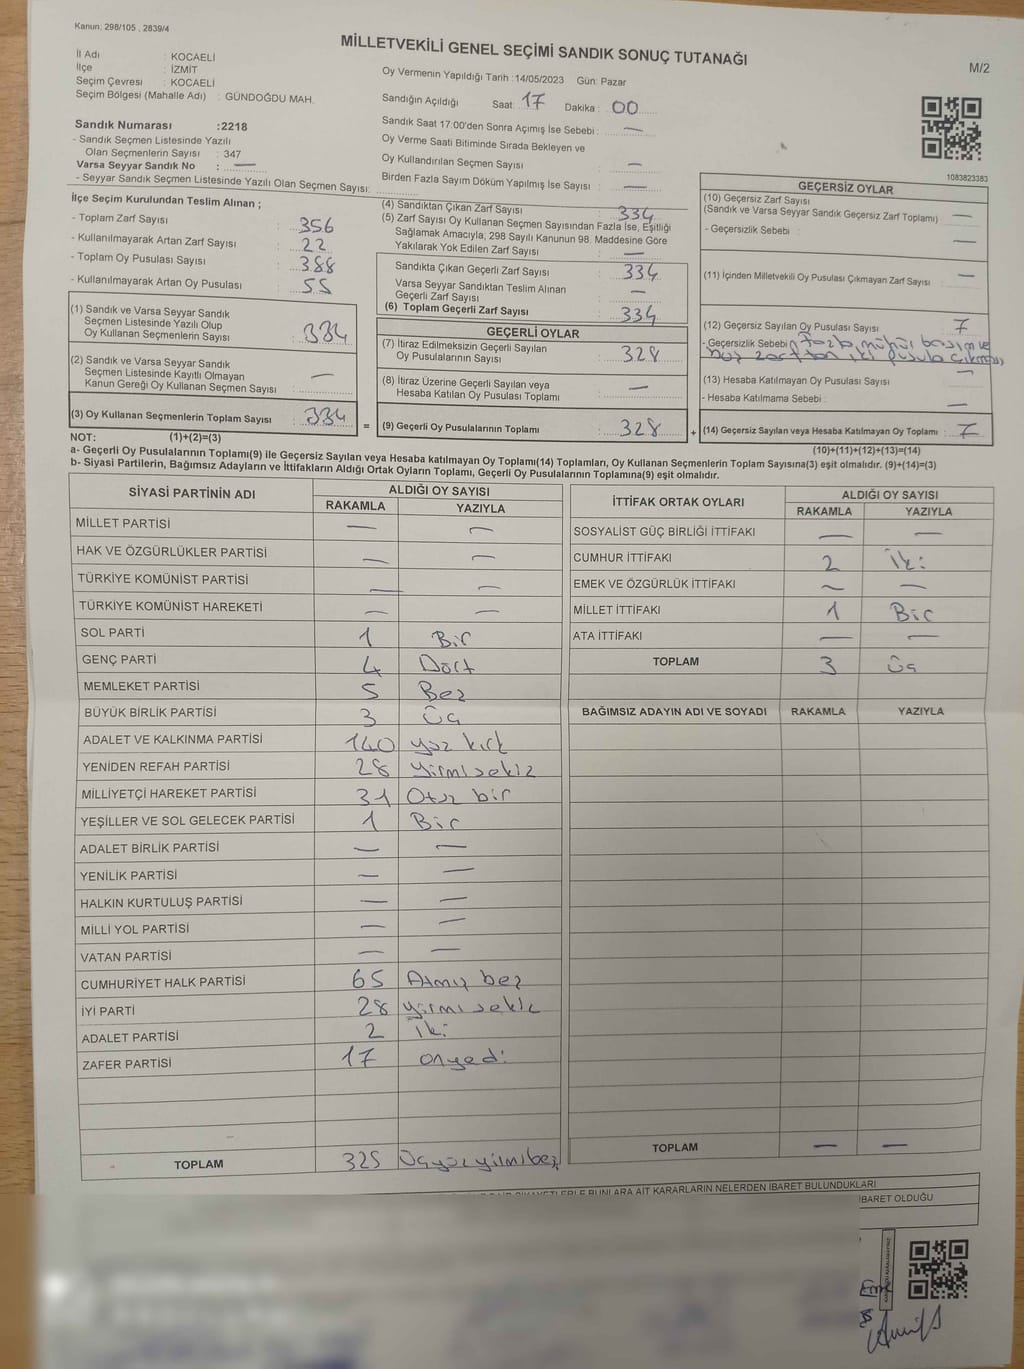 Kanun: 298/105 , 2839/4
MİLLETVEKİLİ GENEL SEÇİMİ SANDIK SONUÇ TUTANAĞI
M/2
İl Adı : KOCAELİ
İlçe : İZMİT
Seçim Çevresi : KOCAELİ
Seçim Bölgesi (Mahalle Adı) : GÜNDOĞDU MAH.
Sandık Numarası :2218
- Sandık Seçmen Listesinde Yazılı
Olan Seçmenlerin Sayısı : 347
Varsa Seyyar Sandık No : —
- Seyyar Sandık Seçmen Listesinde Yazılı Olan Seçmen Sayısı:
Oy Vermenin Yapıldığı Tarih :14/05/2023 Gün: Pazar
Sandığın Açıldığı Saat: 17 Dakika : 00
Sandık Saat 17:00'den Sonra Açımış İse Sebebi : —
Oy Verme Saati Bitiminde Sırada Bekleyen ve
Oy Kullandırılan Seçmen Sayısı : —
Birden Fazla Sayım Döküm Yapılmış İse Sayısı : —
1083823383
İlçe Seçim Kurulundan Teslim Alınan ;
- Toplam Zarf Sayısı : 356
- Kullanılmayarak Artan Zarf Sayısı : 22
- Toplam Oy Pusulası Sayısı : 388
- Kullanılmayarak Artan Oy Pusulası : 55
(1) Sandık ve Varsa Seyyar Sandık
Seçmen Listesinde Yazılı Olup
Oy Kullanan Seçmenlerin Sayısı : 334
(2) Sandık ve Varsa Seyyar Sandık
Seçmen Listesinde Kayıtlı Olmayan
Kanun Gereği Oy Kullanan Seçmen Sayısı : —
(3) Oy Kullanan Seçmenlerin Toplam Sayısı : 334
(4) Sandıktan Çıkan Zarf Sayısı : 334
(5) Zarf Sayısı Oy Kullanan Seçmen Sayısından Fazla İse, Eşitliği
Sağlamak Amacıyla, 298 Sayılı Kanunun 98. Maddesine Göre
Yakılarak Yok Edilen Zarf Sayısı : —
Sandıkta Çıkan Geçerli Zarf Sayısı : 334
Varsa Seyyar Sandıktan Teslim Alınan
Geçerli Zarf Sayısı : —
(6) Toplam Geçerli Zarf Sayısı : 334
GEÇERLİ OYLAR
(7) İtiraz Edilmeksizin Geçerli Sayılan
Oy Pusulalarının Sayısı : 328
(8) İtiraz Üzerine Geçerli Sayılan veya
Hesaba Katılan Oy Pusulası Toplamı : —
= (9) Geçerli Oy Pusulalarının Toplamı : 328
GEÇERSİZ OYLAR
(10) Geçersiz Zarf Sayısı
(Sandık ve Varsa Seyyar Sandık Geçersiz Zarf Toplamı) : —
- Geçersizlik Sebebi : —
(11) İçinden Milletvekili Oy Pusulası Çıkmayan Zarf Sayısı : —
(12) Geçersiz Sayılan Oy Pusulası Sayısı : 7
- Geçersizlik Sebebi : fazla mühür basımı ve
boş zarftan iki pusula çıkması
(13) Hesaba Katılmayan Oy Pusulası Sayısı : —
- Hesaba Katılmama Sebebi : —
+ (14) Geçersiz Sayılan veya Hesaba Katılmayan Oy Toplamı : 7
NOT: (1)+(2)=(3) (10)+(11)+(12)+(13)=(14)
a- Geçerli Oy Pusulalarının Toplamı(9) ile Geçersiz Sayılan veya Hesaba katılmayan Oy Toplamı(14) Toplamları, Oy Kullanan Seçmenlerin Toplam Sayısına(3) eşit olmalıdır. (9)+(14)=(3)
b- Siyasi Partilerin, Bağımsız Adayların ve İttifakların Aldığı Ortak Oyların Toplamı, Geçerli Oy Pusulalarının Toplamına(9) eşit olmalıdır.
SİYASİ PARTİNİN ADI ALDIĞI OY SAYISI
RAKAMLA YAZIYLA
MİLLET PARTİSİ — —
HAK VE ÖZGÜRLÜKLER PARTİSİ — —
TÜRKİYE KOMÜNİST PARTİSİ — —
TÜRKİYE KOMÜNİST HAREKETİ — —
SOL PARTİ 1 Bir
GENÇ PARTİ 4 Dört
MEMLEKET PARTİSİ 5 Beş
BÜYÜK BİRLİK PARTİSİ 3 Üç
ADALET VE KALKINMA PARTİSİ 140 yüz kırk
YENİDEN REFAH PARTİSİ 28 yirmi sekiz
MİLLİYETÇİ HAREKET PARTİSİ 31 Otuz bir
YEŞİLLER VE SOL GELECEK PARTİSİ 1 Bir
ADALET BİRLİK PARTİSİ — —
YENİLİK PARTİSİ — —
HALKIN KURTULUŞ PARTİSİ — —
MİLLİ YOL PARTİSİ — —
VATAN PARTİSİ — —
CUMHURİYET HALK PARTİSİ 65 Atmış beş
İYİ PARTİ 28 yirmi sekiz
ADALET PARTİSİ 2 İki
ZAFER PARTİSİ 17 onyedi
TOPLAM 325 Üçyüzyirmibeş
İTTİFAK ORTAK OYLARI ALDIĞI OY SAYISI
RAKAMLA YAZIYLA
SOSYALİST GÜÇ BİRLİĞİ İTTİFAKI — —
CUMHUR İTTİFAKI 2 İki
EMEK VE ÖZGÜRLÜK İTTİFAKI — —
MİLLET İTTİFAKI 1 Bir
ATA İTTİFAKI — —
TOPLAM 3 Üç
BAĞIMSIZ ADAYIN ADI VE SOYADI RAKAMLA YAZIYLA
TOPLAM — —
BUNLARA AİT KARARLARIN NELERDEN İBARET BULUNDUKLARI
İBARET OLDUĞU